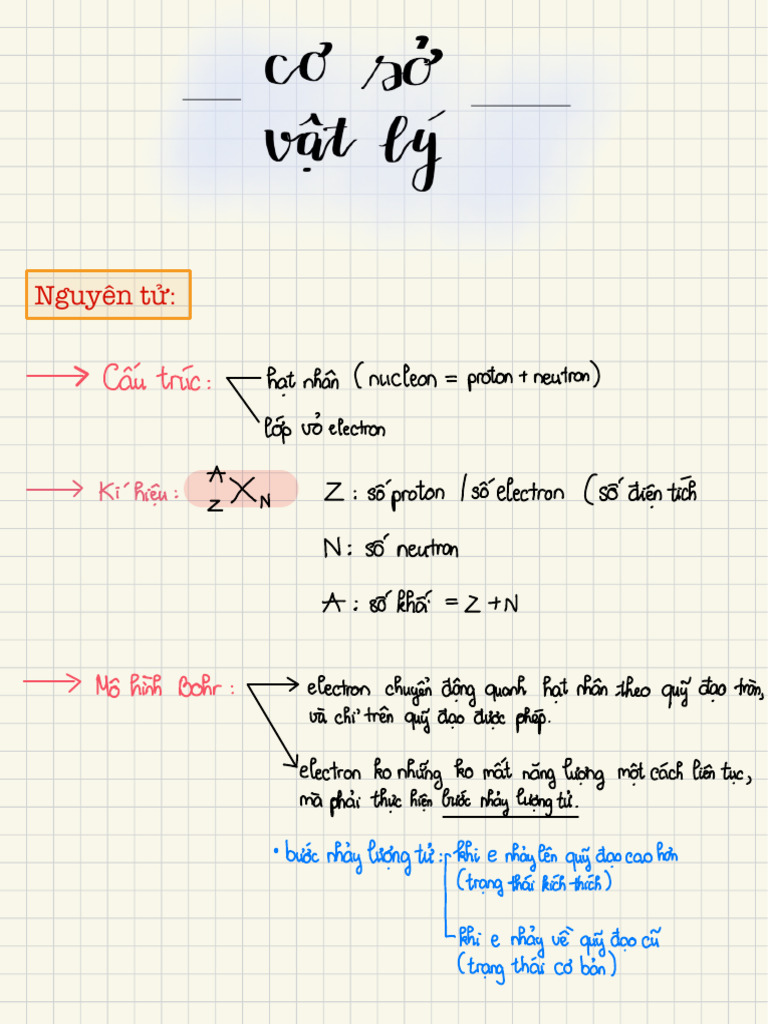 cơ sở
vật lý
Nguyên tử:
→ Cấu trúc: hạt nhân (nucleon = proton + neutron)
lớp vỏ electron
→ Kí hiệu: A Z X N Z: số proton / số electron (số điện tích
N: số neutron
A: số khối = Z + N
→ Mô hình Bohr: → electron chuyển động quanh hạt nhân theo quỹ đạo tròn,
và chỉ trên quỹ đạo được phép.
electron ko những ko mất năng lượng một cách liên tục,
mà phải thực hiện bước nhảy lượng tử.
• bước nhảy lượng tử: khi e nhảy lên quỹ đạo cao hơn
(trạng thái kích thích)
khi e nhảy về quỹ đạo cũ
(trạng thái cơ bản)